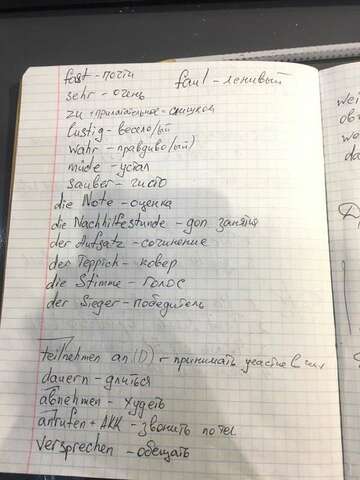 fast - почти faul - ленивый
sehr - очень
zu + прилагательное - слишком
lustig - весело/ый
wahr - правдиво/ый)
müde - устал
sauber - чисто
die Note - оценка
die Nachhilfestunde - доп. занятия
der Aufsatz - сочинение
der Teppich - ковер
die Stimme - голос
der Sieger - победитель
teilnehmen an (D) - принимать участие в
dauern - длиться
abnehmen - худеть
anrufen + AKK - звонить по tel
versprechen - обещать
wei